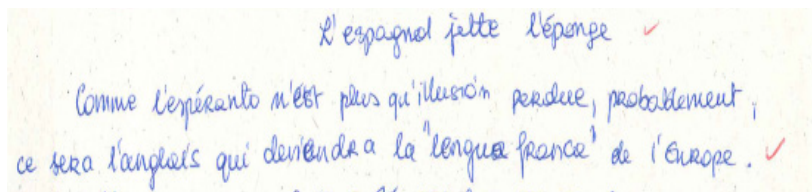 L'espagnol jette l'éponge
Comme l'espéranto n'est plus qu'illusion perdue, probablement,
ce sera l'anglais qui deviendra la "lengua franca" de l'Europe.